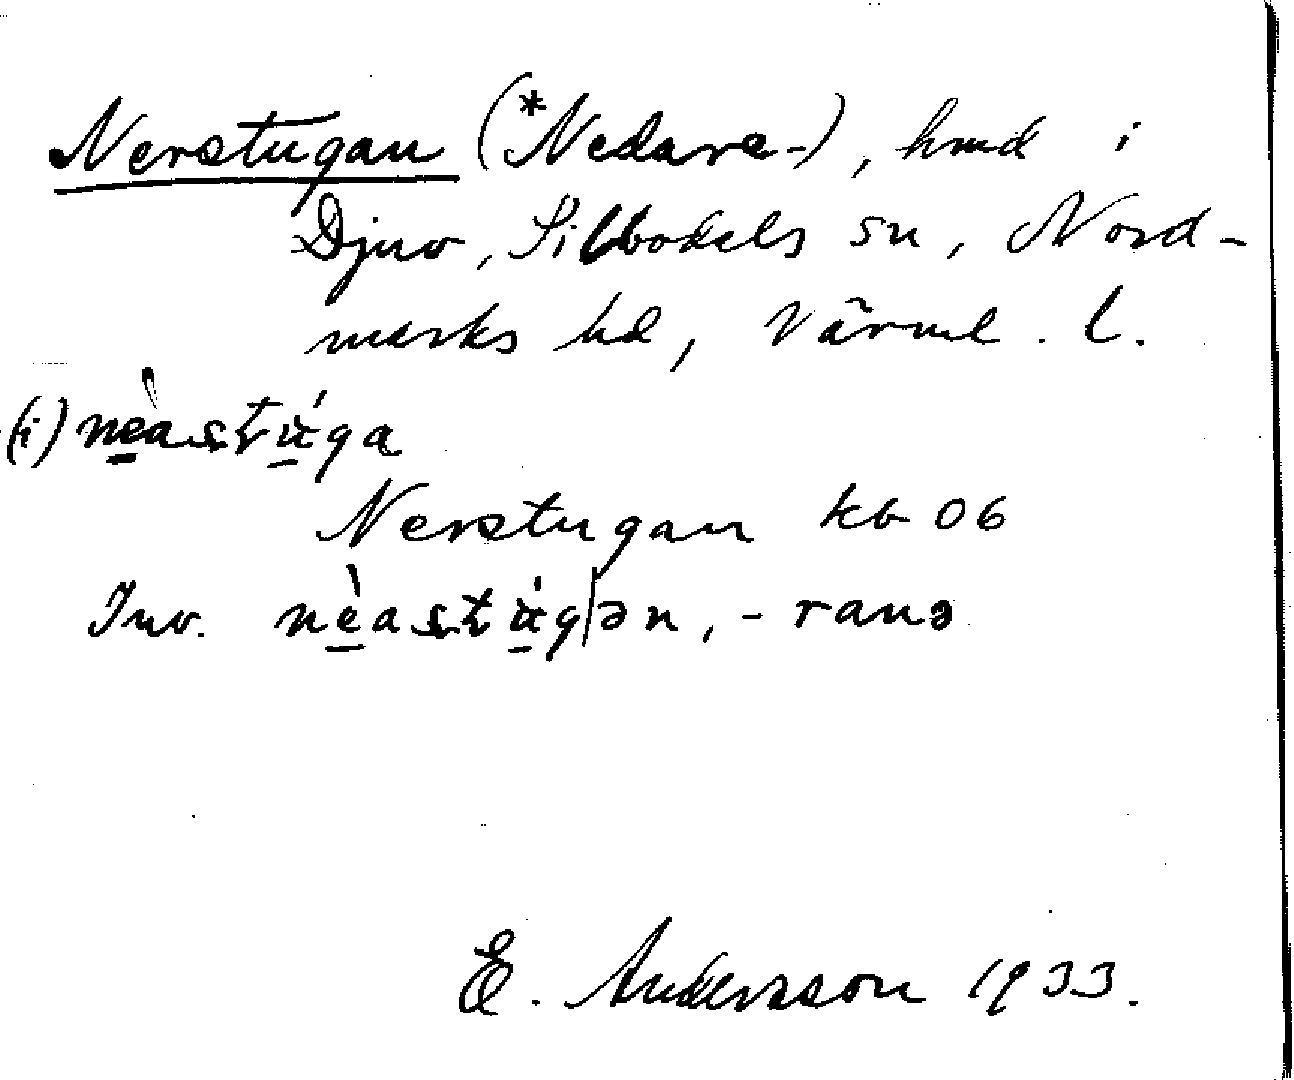 Nerstugan (*Nedare-), hmd i
Djuv, Sillbodals sn, Nord-
marks hd, Värml. l.
(i) nèastúga
Nerstugan kb 06
Inv. nèastúg|ən, -ranə
E. Andersson 1933.